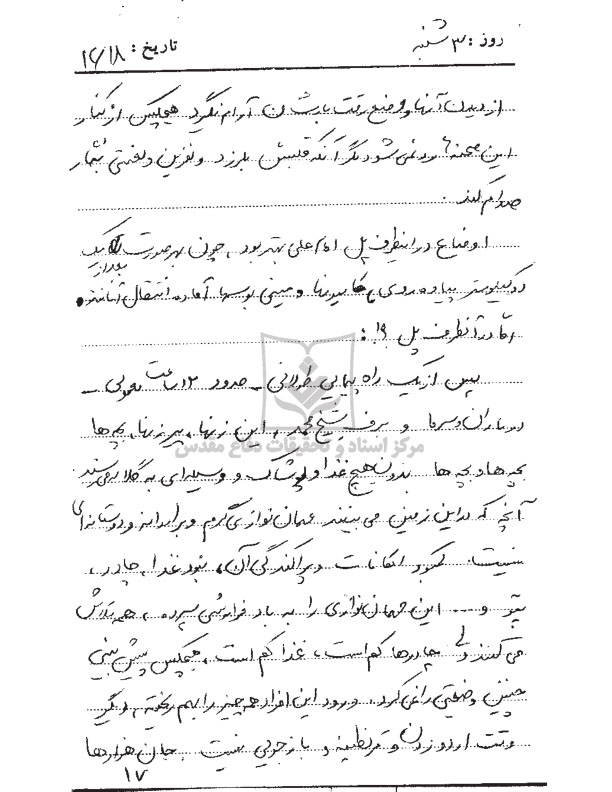 روز: ۳ شنبه
تاریخ: ۱۶/۱۸
از دیدن آنها و وضع رقت بارشان آرام نگیرد هیچکس از کنار
این صحنه ها رد نمی شود مگر آنکه قلبش بلرزد و نفرین و لعنتی نثار
صدام کند.
اوضاع در اینطرف پل امام علی بهتر بود، چون بهر صورت یک
بعد از
دو کیلومتر پیاده روی، کامیونها و مینی بوسها آماده انتقال آنانند،
اما در آنطرف پل ها:
پس از یک راه پیمایی طولانی - حدود ۱۲ ساعت معمولی -
در باران و سرما و برف شیخ محمد، این زنها، پیرزنها، بچه ها
بچه ها و بچه ها بدون هیچ غذا و پوشاک و وسیله ای به گلاله می رسند.
آنچه که در این زمین می بینند مهمان نوازی گرم و برادرانه و دوستانه ای
نیست. کمبود امکانات و پراکندگی آن، نبود غذا، چادر،
پتو و... این مهمان نوازی را به باد فراموشی سپرده، همه تلاش
می کنند ولی چادرها کم است، غذا کم است، هیچکس پیش بینی
چنین وضعیتی را نمی کرد. ورود این افراد همه چیز را بهم ریخته، دیگر
وقت اردو زدن و قرنطینه و بازجویی نیست جان هزارها
۱۷
مرکز اسناد و تحقیقات دفاع مقدس